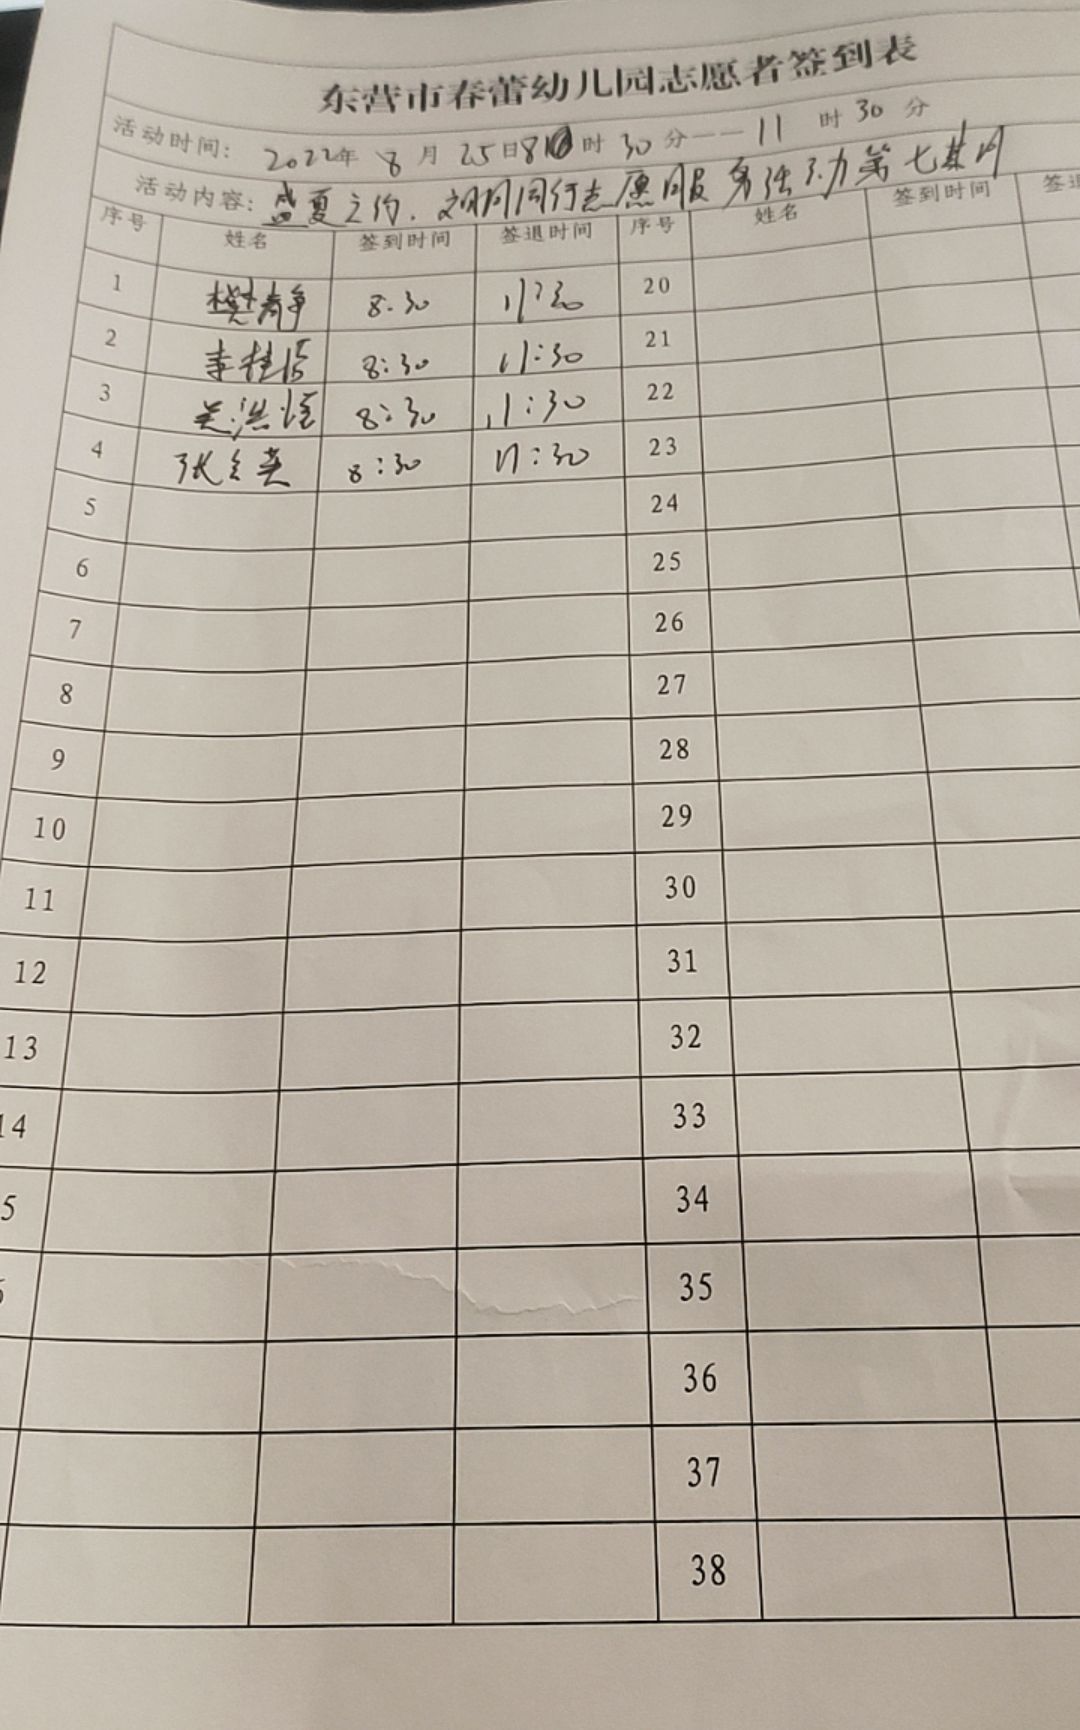 东营市春蕾幼儿园志愿者签到表
活动时间: 2022年 8 月 25日8 时 30分——11 时 30 分
活动内容: 盛夏之约.文明同行志愿服务活动第七期
序号 姓名 签到时间 签退时间 序号 姓名 签到时间 签退
1 樊静 8:30 11:30 20
2 李桂 8:30 11:30 21
3 吴洪 8:30 11:30 22
4 张 英 8:30 11:30 23
5 24
6 25
7 26
8 27
9 28
10 29
11 30
12 31
13 32
14 33
5 34
35
36
37
38